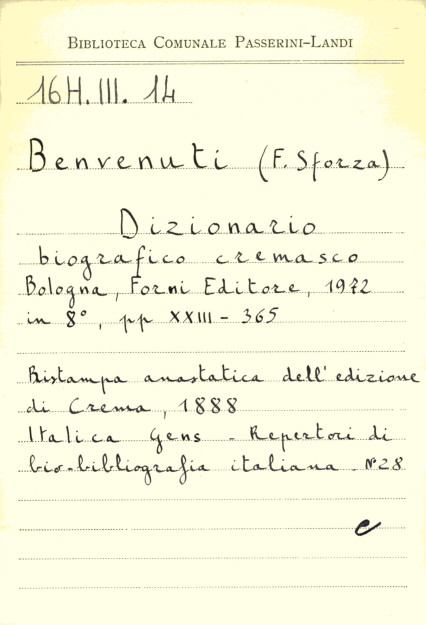 BIBLIOTECA COMUNALE PASSERINI-LANDI
16H.III.14
Benvenuti (F. Sforza)
Dizionario
biografico cremasco
Bologna, Forni Editore, 1972
in 8°, pp XXIII - 365
Ristampa anastatica dell'edizione
di Crema, 1888
Italica Gens - Repertori di
bio-bibliografia italiana - N°28
e